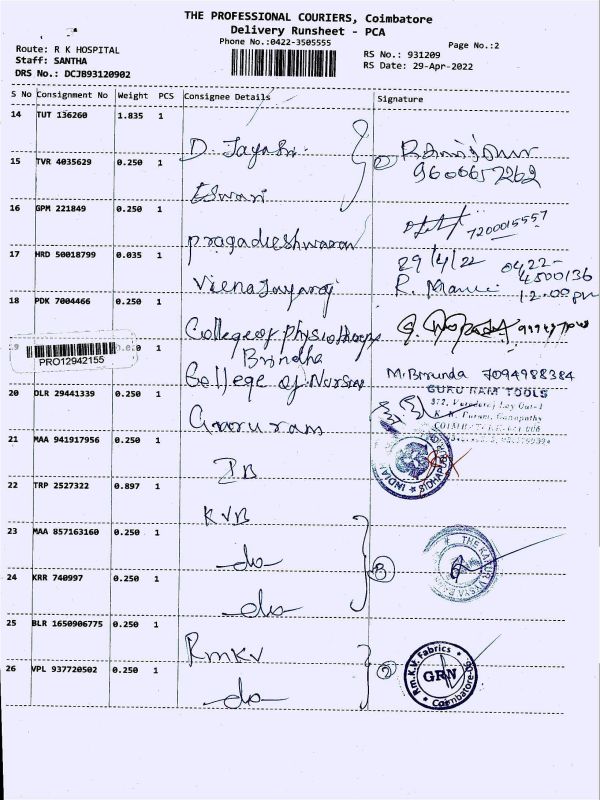 THE PROFESSIONAL COURIERS, Coimbatore
Delivery Runsheet - PCA
Phone No.:0422-3505555
Page No.:2
Route: R K HOSPITAL
Staff: SANTHA
DRS No.: DCJB93120902
RS No.: 931209
RS Date: 29-Apr-2022
S No Consignment No Weight PCS Consignee Details Signature
14 TUT 136260 1.835 1
D. Jayashri
15 TVR 4035629 0.250 1
9606657262
Eswari
16 GPM 221849 0.250 1
7200015557
pragadieshwaran
17 HRD 50018799 0.035 1
29/4/22 0422-
4500136
Veena Jayaraj
12.00 pm
18 PDK 7004466 0.250 1
College of physiotherapy
PRO12942155
Brindha
College of Nursing
M. Brrunda 7094988384
20 DLR 29441339 0.250 1
GURU RAM TOOLS
Guru ram
21 MAA 941917956 0.250 1
IB
INDIAN
22 TRP 2527322 0.897 1
KVB
23 MAA 857163160 0.250 1
do
3
24 KRR 740997 0.250 1
do
25 BLR 1650906775 0.250 1
RmKV
26 VPL 937720502 0.250 1
do
2
Rm.K.V. Fabrics
GRN
Coimbatore